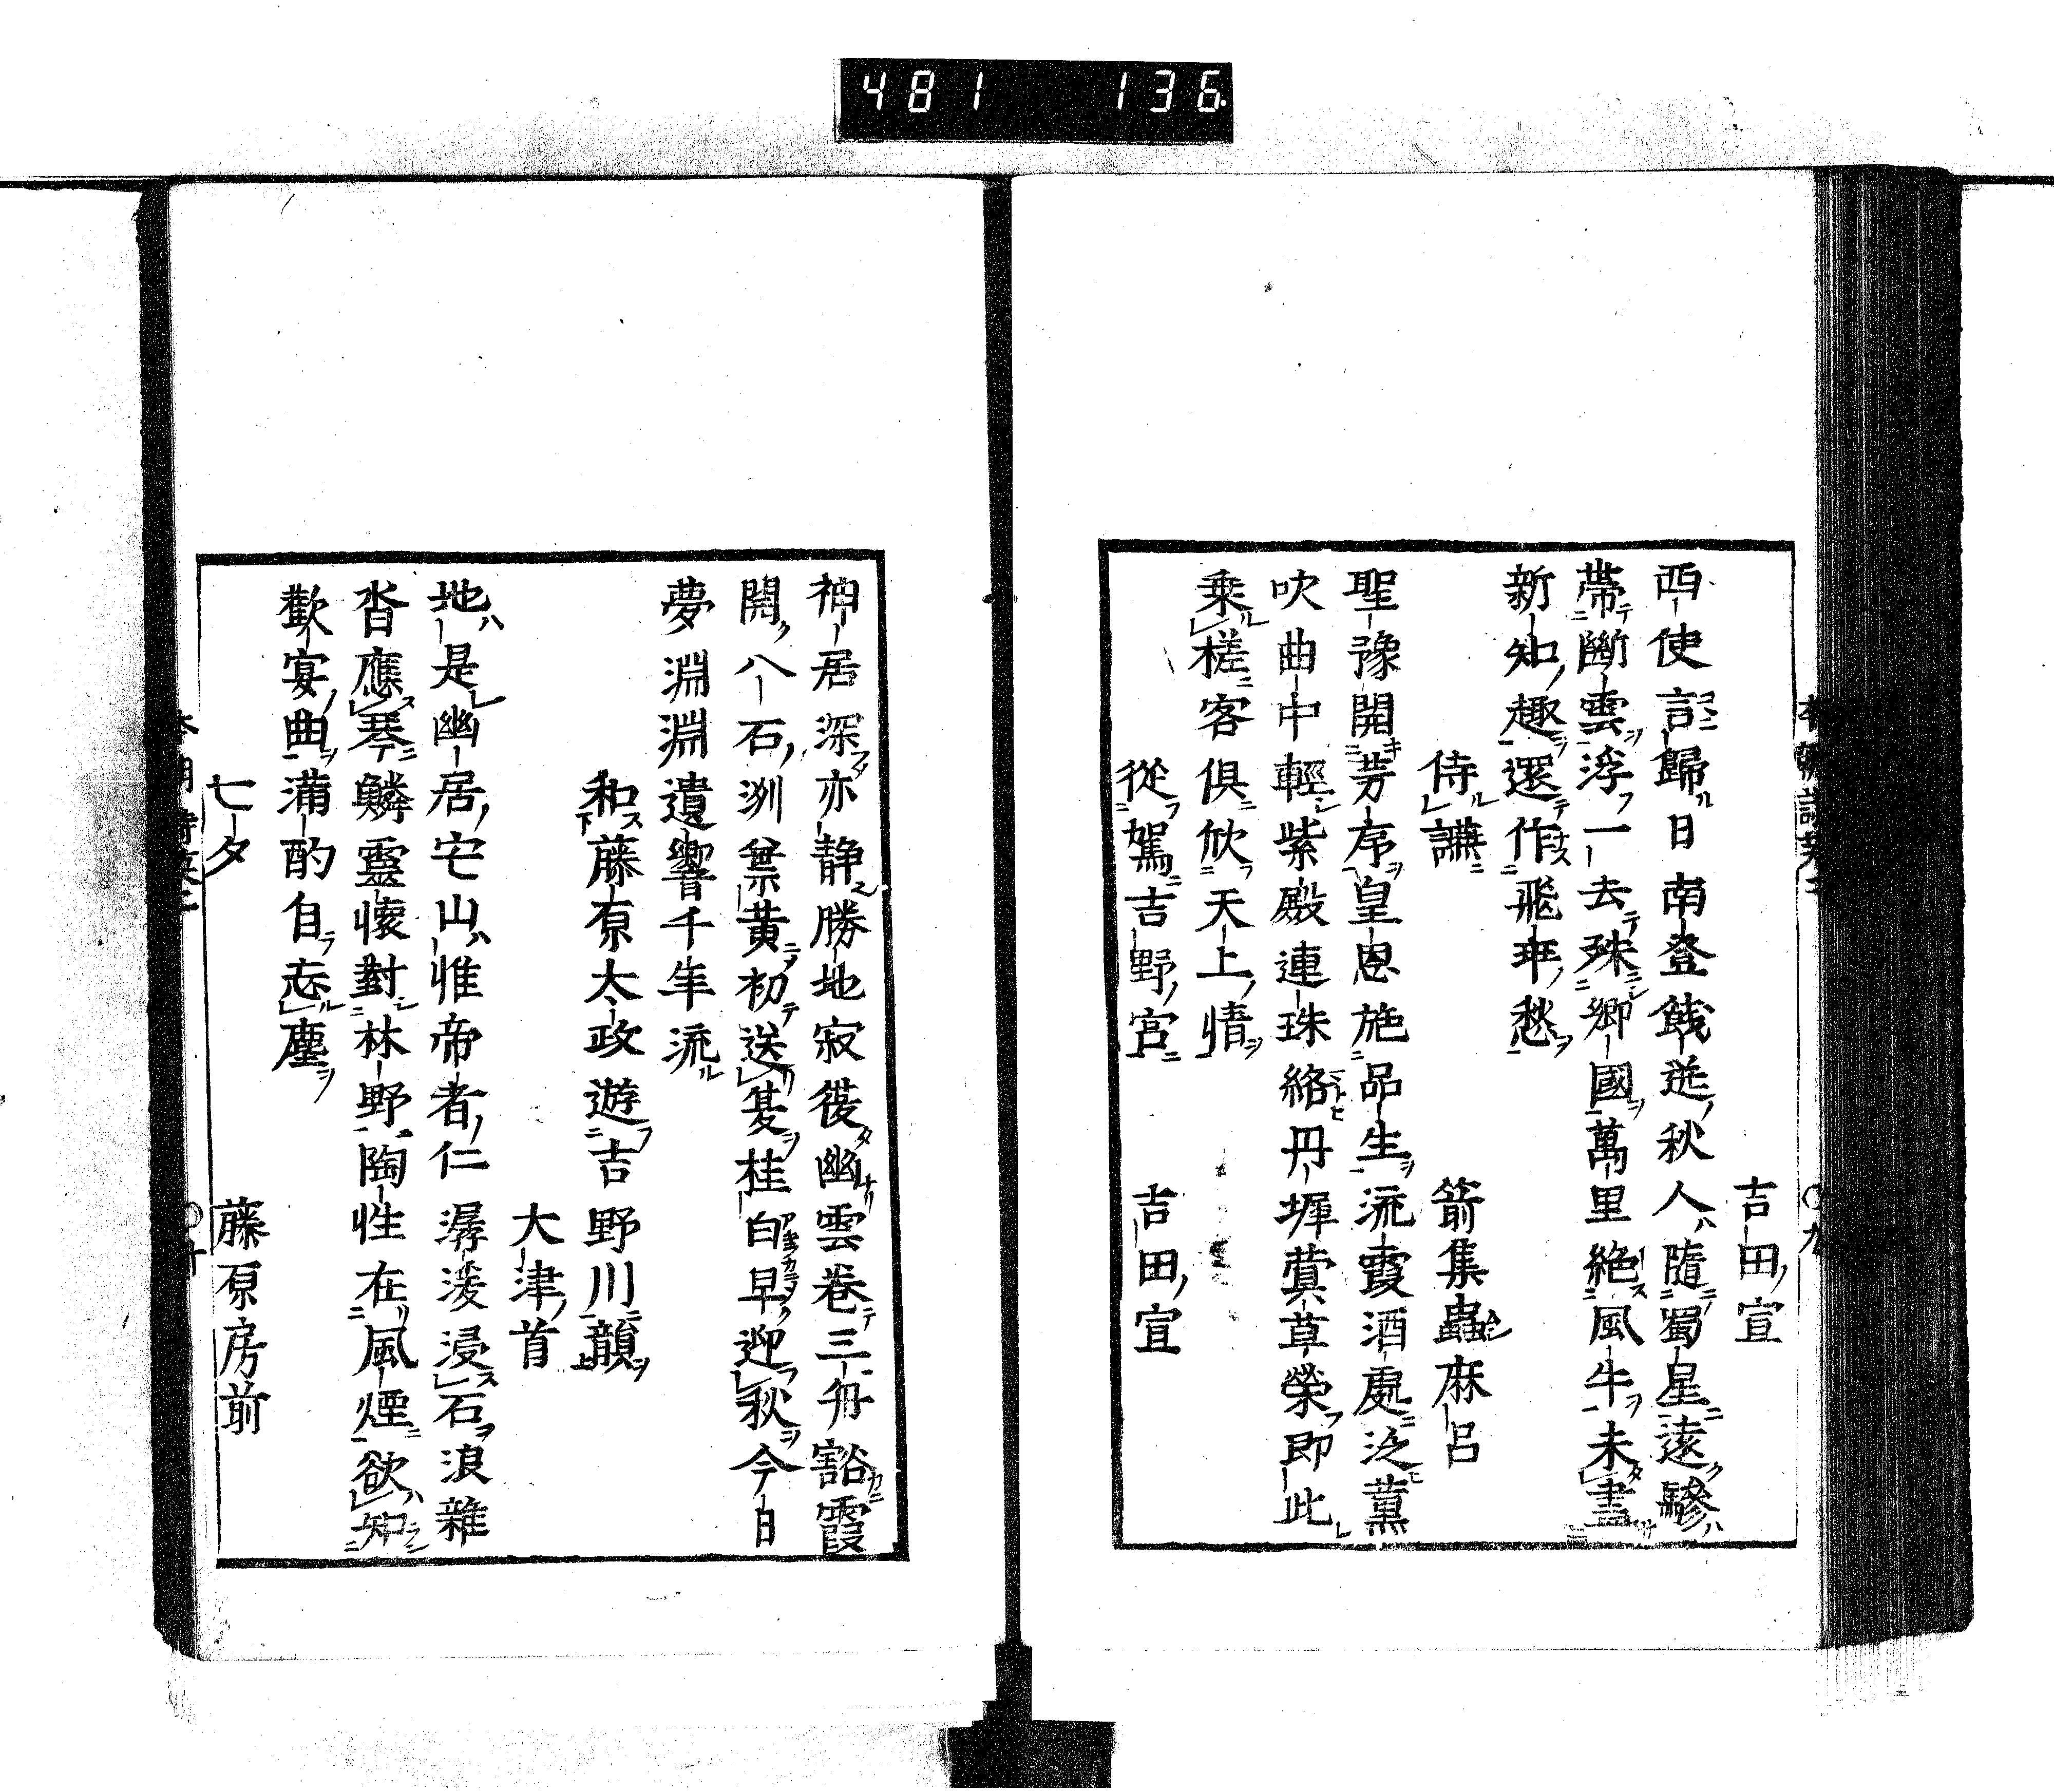 481 136
吉田宜
西使言歸日南登餞送秋人隨蜀星遠驂
帶斷雲浮一去殊郷國萬里絶風牛未盡
新知趣還作飛乖愁
侍讌 箭集蟲麻呂
聖豫開芳序皇恩施品生流霞酒處泛薫
吹曲中輕紫殿連珠絡丹墀蓂草榮即此
乗槎客俱欣天上情
從駕吉野宮 吉田宜
神居深亦静勝地寂復幽雲巻三舟豁霞
開八石洲葉黄初送夏桂白早迎秋今日
夢淵淵遺響千年流
和藤原大政遊吉野川韻
大津首
地是幽居宅山惟帝者仁潺湲浸石浪雜
沓應琴鱗靈懷對林野陶性在風煙欲知
歡宴曲滿酌自忘塵
七夕 藤原房前